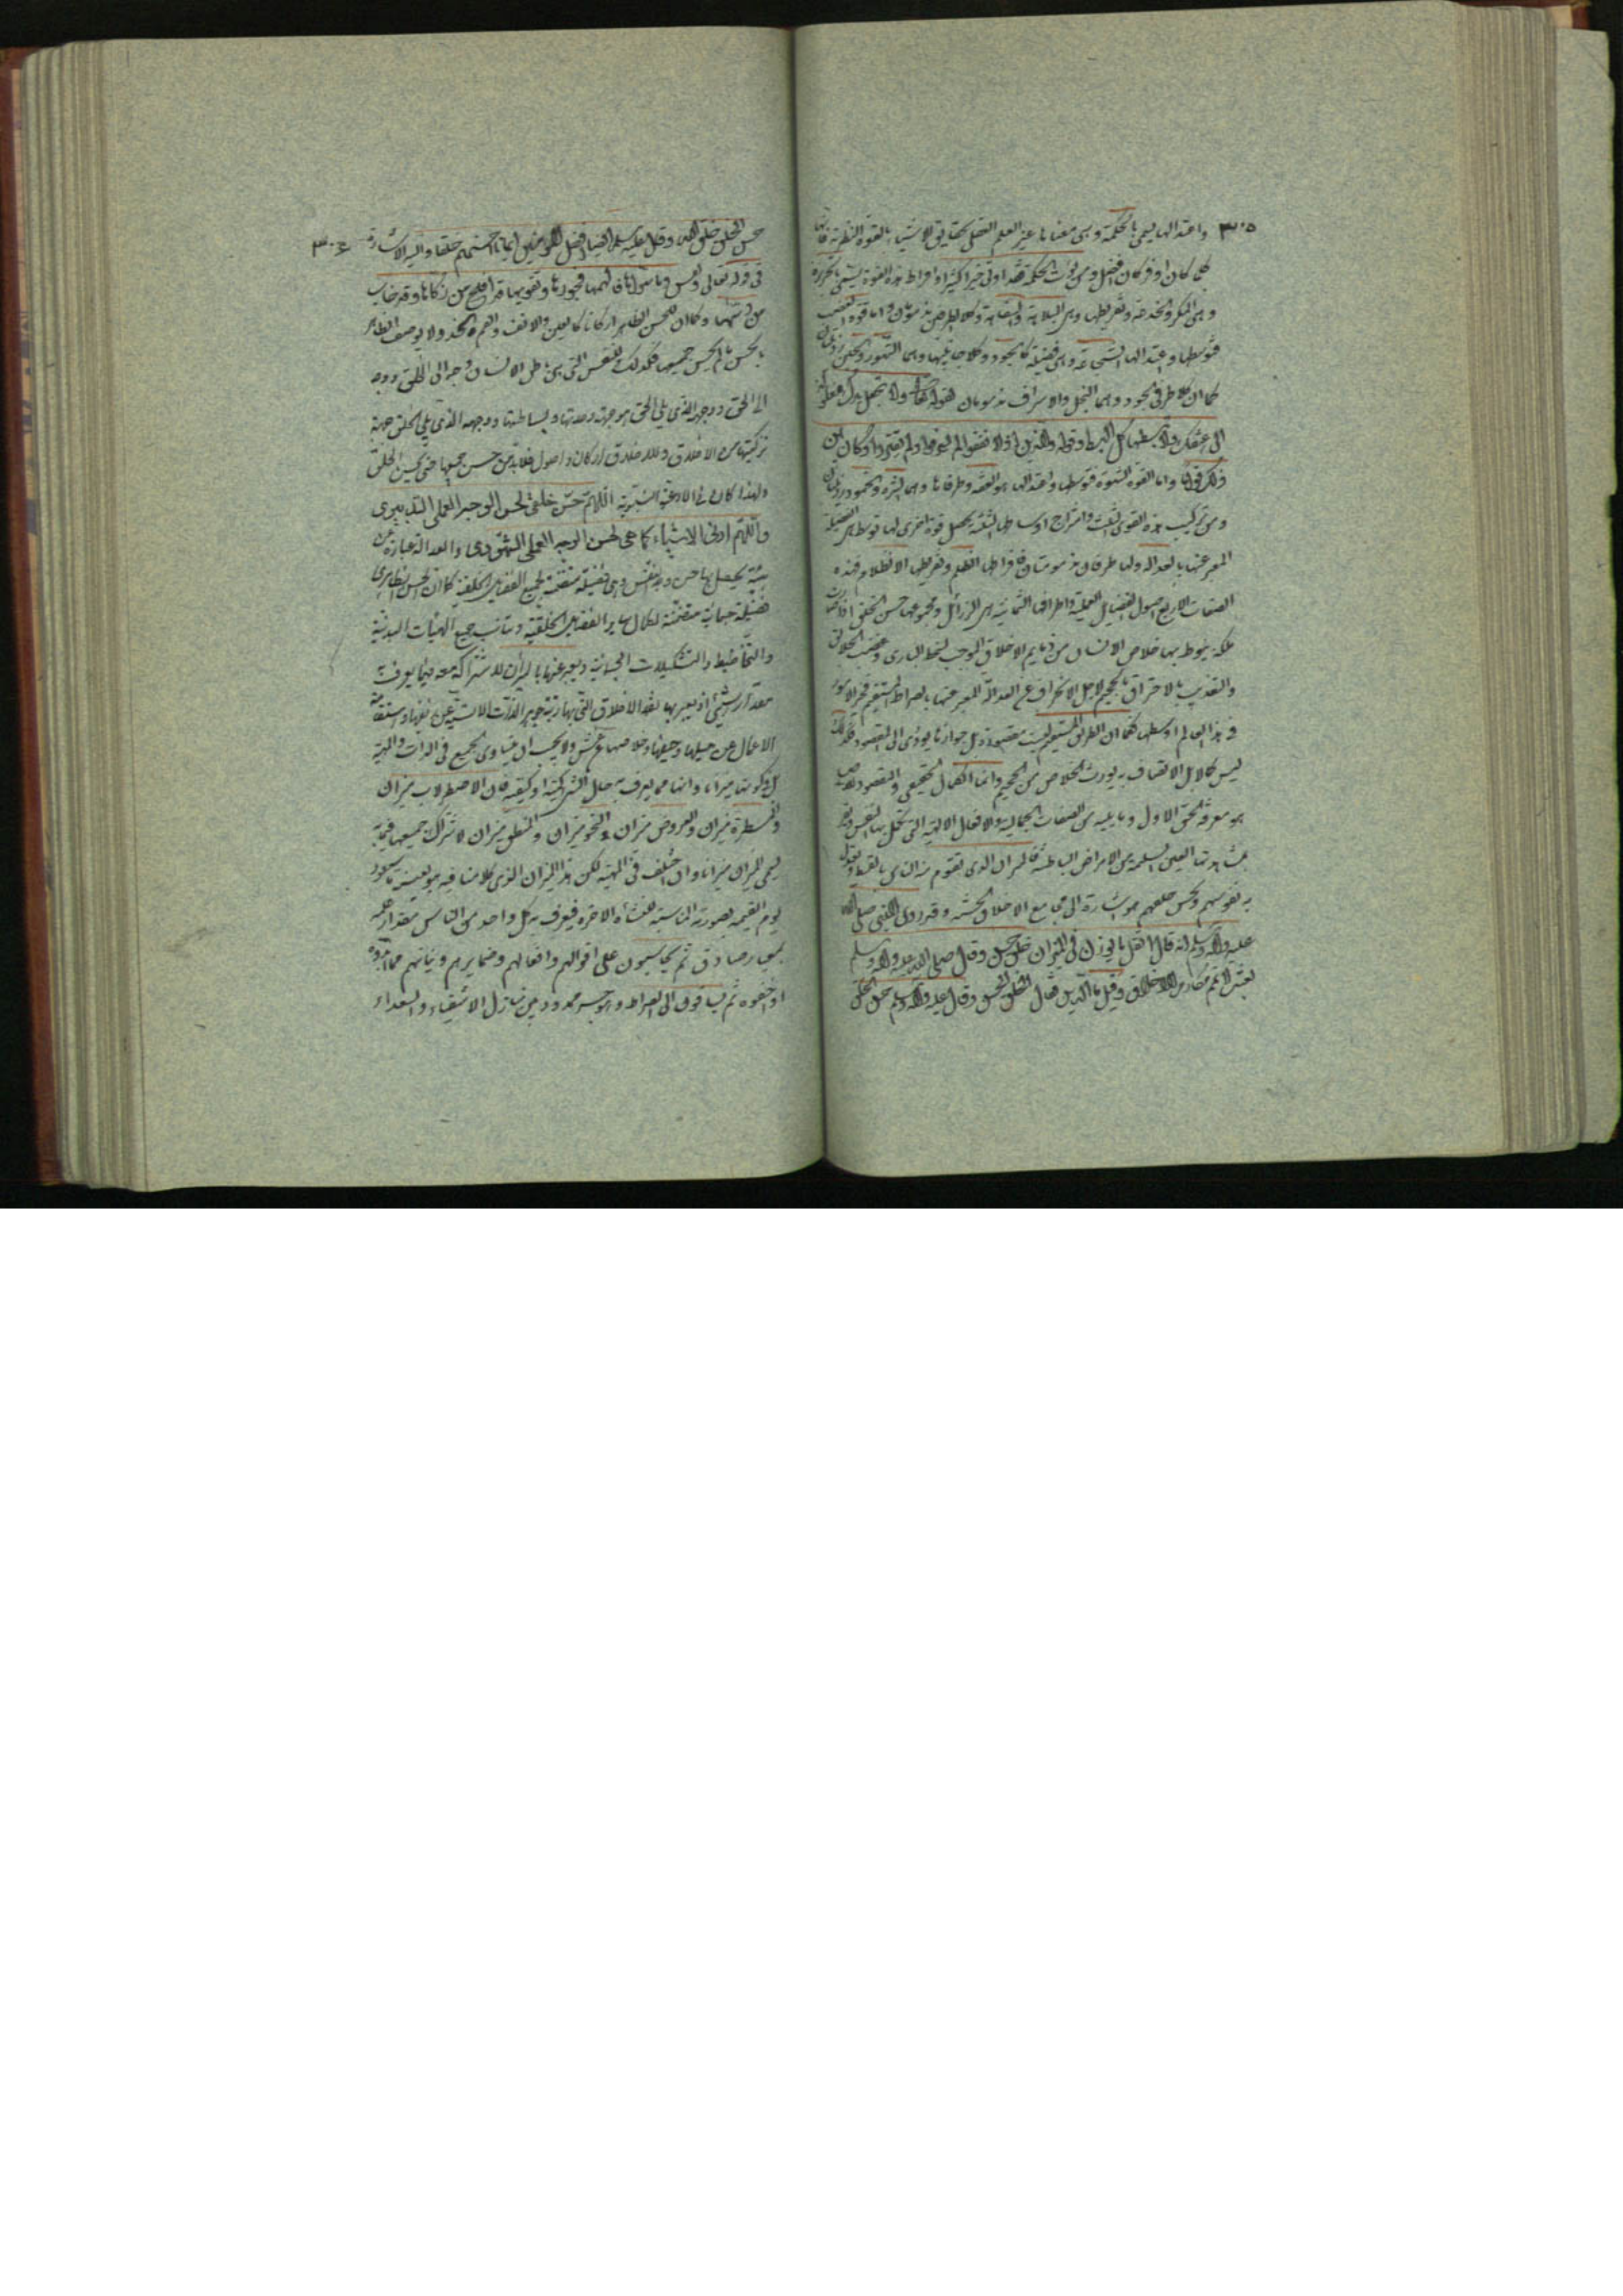 ٣٠٥
واعتدالها يسمى بالحكمة وهى معناها غير العلم العقلى بحقايق الاشياء بالقوة النظرية فانها
كلما كان اوفر كان افضل ومن يؤت الحكمة فقد اوتى خيرا كثيرا وافراط هذه القوة يسمى بالجربزة
وهى المكر والخدعة وتفريطها وهى البلاهة والسفاهة وكلا الطرفين مذمومان واما قوة الغضب
فتوسطها واعتدالها الشجاعة وهى فضيلة كالجود وكلا جانبيها وهما التهور والجبن رذيلتان
كما ان كلا طرفى الجود وهما البخل والاسراف مذمومان لقوله تعالى ولا تجعل يدك مغلولة
الى عنقك ولا تبسطها كل البسط وقوله والذين اذا انفقوا لم يسرفوا ولم يقتروا وكان بين
ذلك قواما واما القوة الشهوة فتوسطها واعتدالها هو العفة وطرفاها وهما الشره والخمود رذيلتان
ومن تركيب هذه القوى الثلث وامتزاج اوساطها الثلثة يحصل قوة اخرى لها توسط هى الفضيلة
المعبر عنها بالعدالة ولها طرفان مذمومتان فافراطها الظلم وتفريطها الانظلام فهذه
الصفات الاربع اصول الفضايل العملية واطرافها الثمانية هى الرذائل ومجموعها حسن الخلق اذا صارت
ملكة ينوط بها خلاص الانسان من ذمايم الاخلاق الموجب لسخط البارى وغضب الخلاق
والتعذيب بالاحتراق بالجحيم لاجل الانحراف عن العدالة المعبر عنها بالصراط المستقيم فخير الامور
فى هذا العالم اوسطها فكما ان الطريق المستقيم ليست مقصودة بل جوازها يؤدى الى المقصود فكذلك
ليس كلا بل الاتصاف به يورث الخلاص من الجحيم وانما الكمال الحقيقى والمقصود
هو معرفة الحق الاول وما يليه من الصفات الجمالية والافعال الالهية التى تكمل بها النفس
بمشاهدتها العين السليمة من الامراض الباطنة فالميزان الذى تقوم به الناس بالقسط
به نفوسهم وتحسن خلقهم هو اشارة الى مجامع الاخلاق الحسنة وقد روى عن النبى صلى الله
عليه واله وسلم انه قال اثقل ما يوزن فى الميزان خلق حسن وقال صلى الله عليه واله وسلم
بعثت لاتمم مكارم الاخلاق وقيل ما الدين فقال الخلق الحسن وقال عليه واله وسلم حسن الخلق
٣٠٤
حسن الخلق خلق الله وقال عليه وسلم ايضا افضل المؤمنين ايمانا احسنهم خلقا واليه الاشارة
فى قوله تعالى ونفس وما سواها فالهمها فجورها وتقويها قد افلح من زكاها وقد خاب
من دسيها وكما ان للحسن الظاهر اركانا كالعين والانف والفم والخد ولا يوصف الظاهر
بالحسن ما لم يحسن جميعها فكذلك النفس التى هى باطن الانسان وجه الى الخلق ووجه
الى الحق ووجهه الذى يلى الحق هو جهة وحدتها وبساطتها ووجهه الذى يلى الخلق جهة
تركيبها من الاخلاق وللاخلاق اركان واصول فلا بد من حسن جميعها حتى يحسن الخلق
ولهذا كان فى الادعية النبوية اللهم حسن خلقى لحسن الوجه العملى التدبيرى
واللهم ارنى الاشياء كما هى لحسن الوجه العلمى الشهودى والعدالة عبارة عن
هيئة يحصل بها حسن وجه النفس وهى فضيلة متضمنة لجميع الفضايل الخلقية كما ان الحسن الظاهرى
فضيلة جسمانية متضمنة لكمال ساير الفضايل الخلقية وتناسب جميع الهيئات البدنية
والتخاطيط والتشكيلات الجسمانية ويعبر عنها بالميزان للاشتراكه معه فيما يعرف به
مقدار الشىء اذ يعبر بها بقدر الاخلاق التى بها زينة جوهر الذات الانسانية عن نقصها واستقامة
الاعمال عن ميلها وحيفها وخلاصها عن غش ولا يجب ان يتساوى الجميع فى الذات والهيئة
بل وكونها ميزانا وانما مما يعرف به حال الشىء كميته او كيفيته فان الاصطرلاب ميزان
والمسطرة ميزان والعروض ميزان والنحو ميزان والمنطق ميزان لاشتراك جميعها فيما به
يسمى الميزان ميزانا وان اختلف فى المهية لكن هذا الميزان الذى كلامنا فيه هو بعينه ما يعود
يوم القيمة بصورته المناسبة للنشأة الاخرة فيعرف به كل واحد من الناس مقدار علمه
بمعيار صادق ثم يحاسبون على اقوالهم وافعالهم وضمايرهم ونياتهم مما ابدوه
او اخفوه ثم يساقون الى الصراط وهو جسر ممدود بين منازل الاشقياء والسعداء